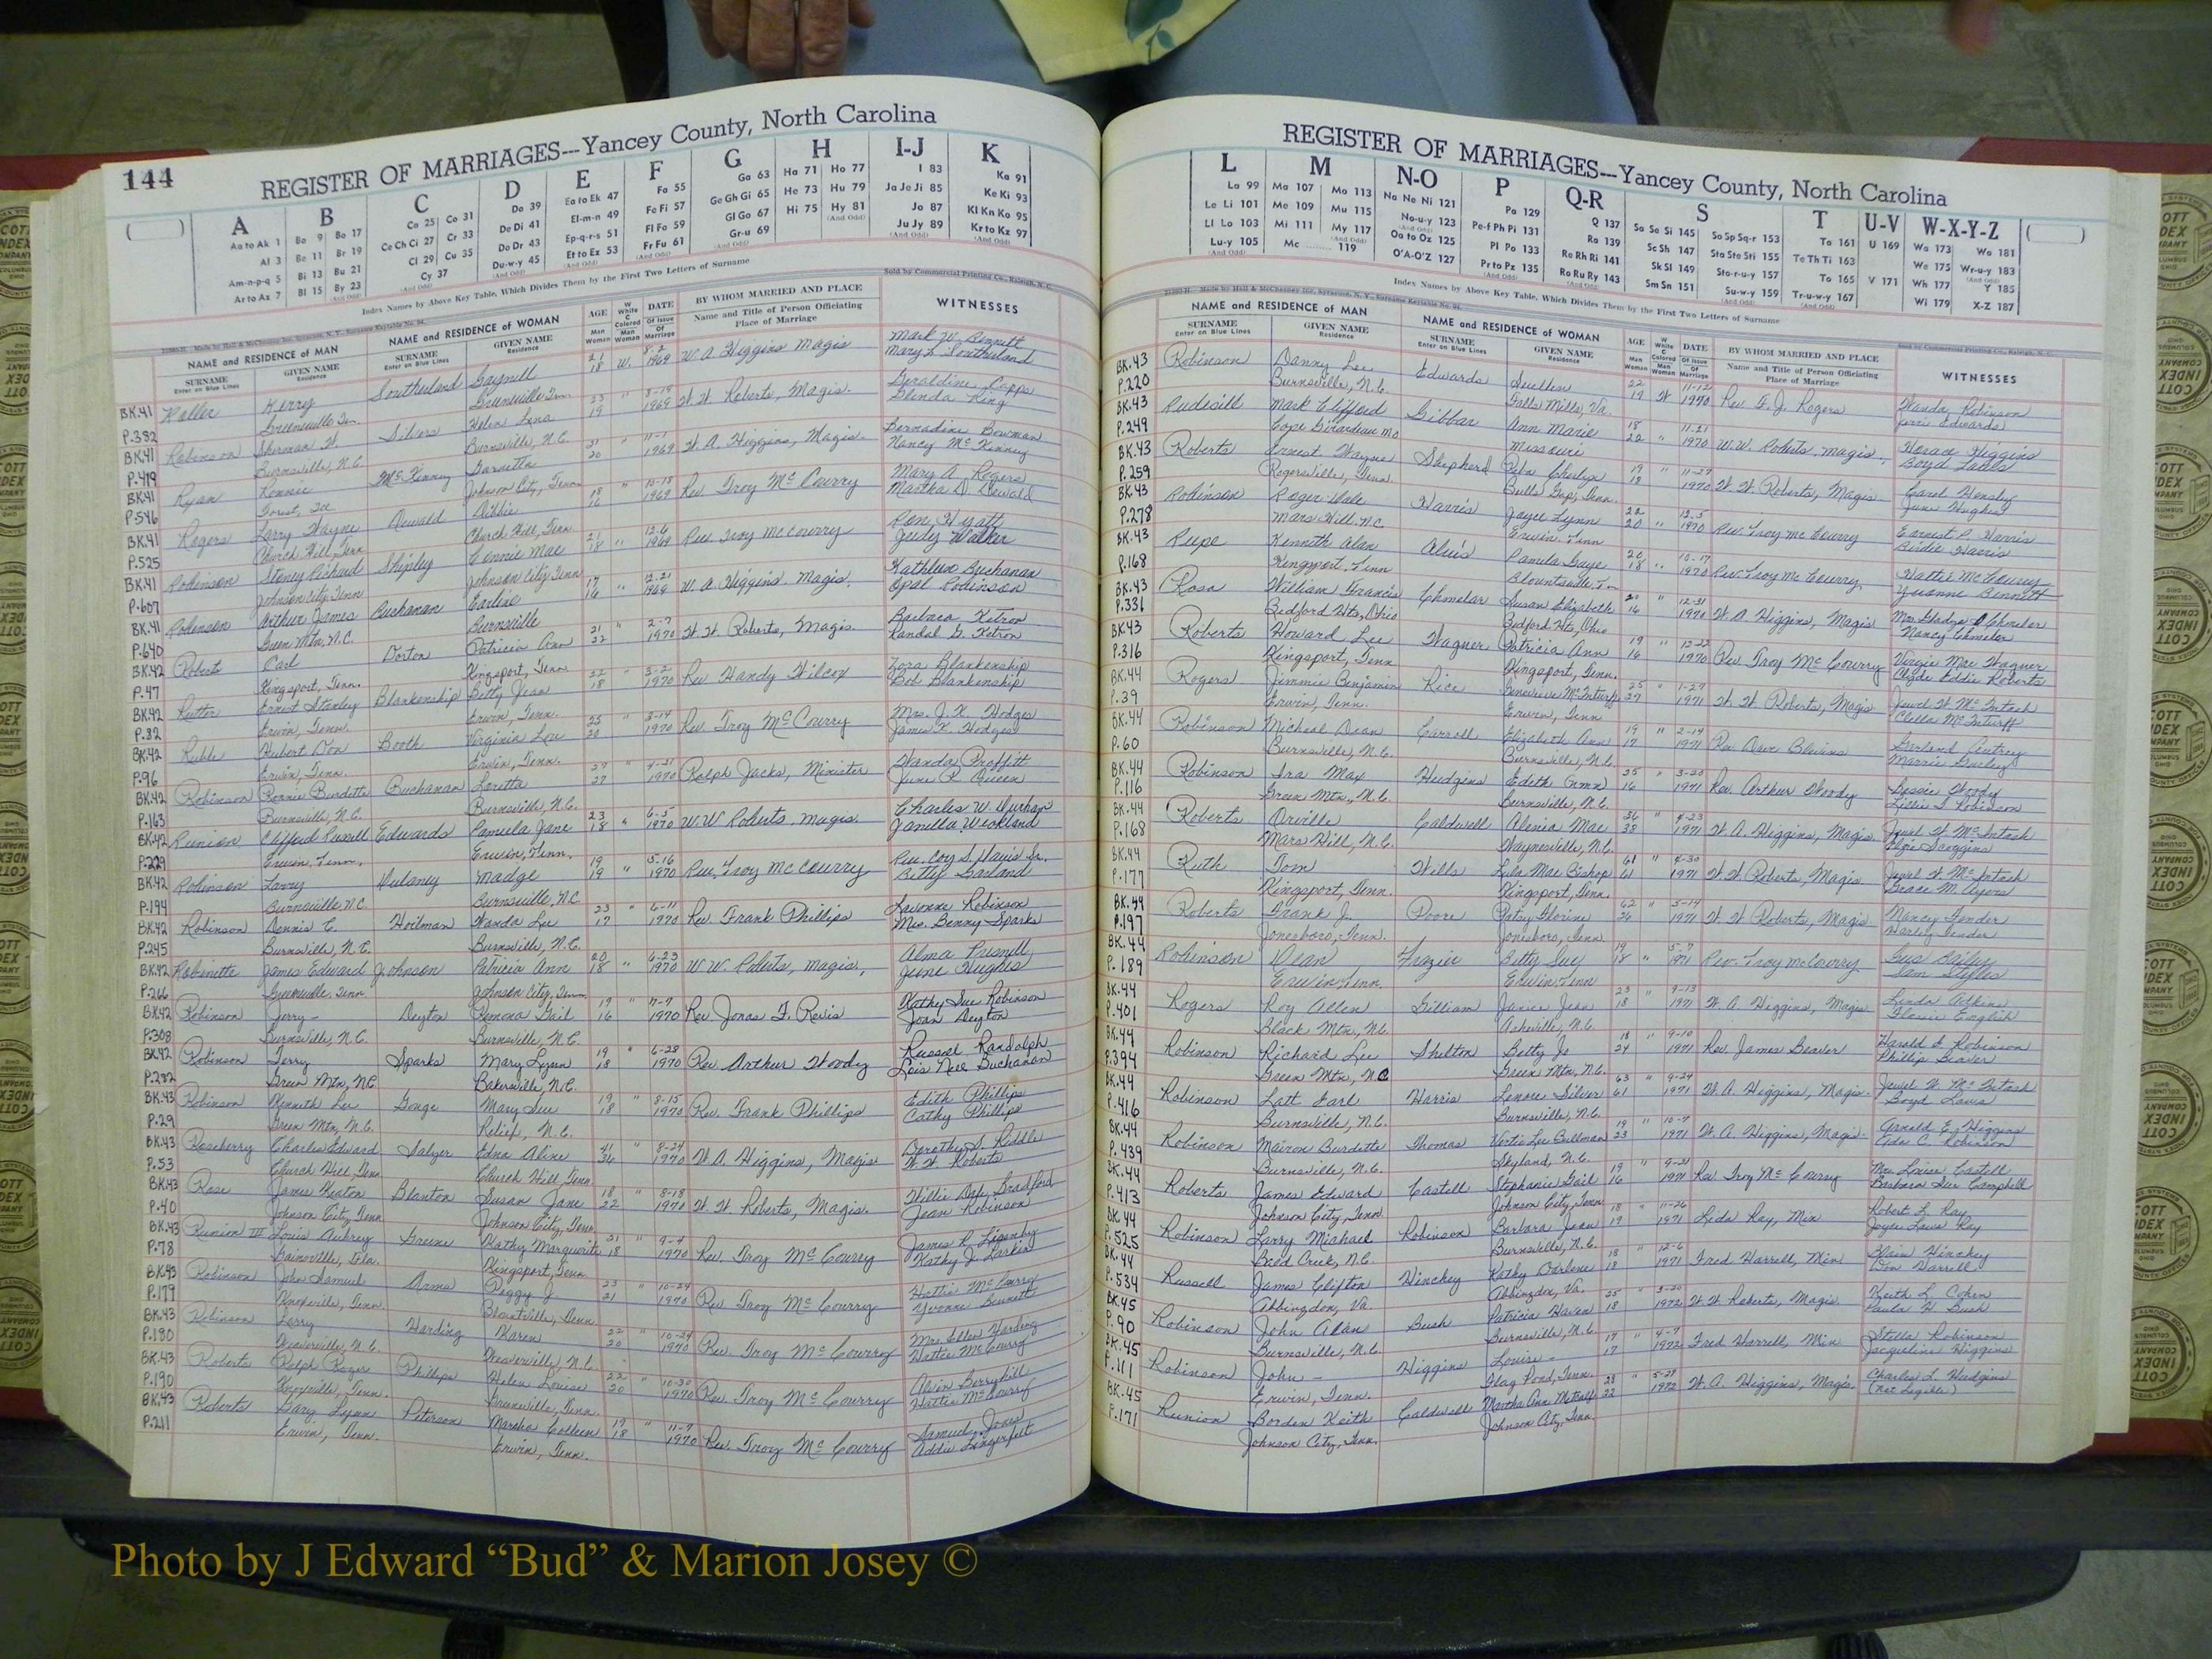 144
REGISTER OF MARRIAGES---Yancey County, North Carolina
A B C D E F G H I-J K
Aa to Ak 1 Ba 9 Bo 17 Ca 25 Co 31 Da 39 Ea to Ek 47 Fa 55 Ga 63 Ha 71 Ho 77 I 83 Ka 91
Al 3 Be 11 Br 19 Ce Ch Ci 27 Cr 33 De Di 41 El-m-n 49 Fe Fi 57 Ge Gh Gi 65 He 73 Hu 79 Ja Je Ji 85 Ke Ki 93
Am-n-p-q 5 Bi 13 Bu 21 Cl 29 Cu 35 Do Dr 43 Ep-q-r-s 51 Fl Fo 59 Gl Go 67 Hi 75 Hy 81 Jo 87 Kl Kn Ko 95
Ar to Az 7 Bl 15 By 23 Cy 37 Du-w-y 45 Et to Ez 53 Fr Fu 61 Gr-u 69 Ju Jy 89 Kr to Kz 97
Index Names by Above Key Table, Which Divides Them by the First Two Letters of Surname
Sold by Commercial Printing Co., Raleigh, N. C.
NAME and RESIDENCE OF MAN NAME and RESIDENCE OF WOMAN AGE DATE BY WHOM MARRIED AND PLACE WITNESSES
SURNAME GIVEN NAME SURNAME GIVEN NAME Name and Title of Person Officiating
Enter on Blue Lines Residence Enter on Blue Lines Residence Place of Marriage
BK.41 Kerry Southerland Gaynell 21 W. 8-2 W. A. Higgins Magis Mark W. Bennett
P.382 Greeneville Tn. Greeneville Tenn. 18 1969 Mary L. Southerland
BK.41 Robinson Sherman W. Silvers Helen Lena 23 " 3-19 W. W. Roberts, Magis. Geraldine Capps
P.419 Burnsville, N.C. Burnsville, N.C. 19 1969 Glenda King
BK.41 Ryan Ronnie McKinney 31 " 11-1 W. A. Higgins, Magis. Bernadine Bowman
P.546 Johnson City, Tenn 20 1969 Nancy McKinney
BK.41 Rogers Larry Wayne Dewald Debbie 18 " 10-18 Rev Troy McCourry Mary A. Rogers
P.525 Church Hill, Tenn Church Hill, Tenn 16 1969 Martha D. Dewald
BK.41 Robinson Stoney Richard Shipley Connie Mae 21 " 12-6 Rev Troy McCourry Ron Hyatt
P.607 Johnson City, Tenn Johnson City Tenn 18 1969 Judy Walker
BK.41 Robinson Arthur James Buchanan Earline 17 " 12-21 W. A. Higgins, Magis. Kathleen Buchanan
P.640 Green Mtn, N.C. Burnsville 16 1969 Opal Robinson
BK.42 Robert Carl Dorton Patricia Ann 21 " 2-7 W. W. Roberts, Magis. Barbara Ketron
P.47 Kingsport, Tenn. Kingsport, Tenn 22 1970 Randal G. Ketron
BK.42 Rutter Ernest Stanley Blankenship Betty Jean 22 " 3-2 Rev Handy Wilcox Zora Blankenship
P.82 Erwin, Tenn. Erwin, Tenn. 18 1970 Bob Blankenship
BK.42 Ruble Hubert Don Booth Virginia Lou 25 " 3-14 Rev. Troy McCourry Mrs. J. K. Hodges
P.96 Erwin, Tenn Erwin, Tenn. 20 1970 James K. Hodges
BK.42 Robinson Ronnie Burdette Buchanan Loretta 29 " 4-21 Ralph Jacks, Minister Wanda Proffitt
P.163 Burnsville, N.C. Burnsville, N.C. 27 1970 June R. Queen
BK.42 Runion Clifford Russell Edwards Pamela Jane 23 " 6-5 W.W Roberts, magis. Charles W. Durham
P.229 Erwin, Tenn. Erwin, Tenn. 18 1970 Janella Weekland
BK.42 Robinson Larry Dulaney Madge 19 " 5-16 Rev. Troy McCourry Rev. Coy S. Davis Jr.
P.194 Burnsville, N.C. Burnsville, N.C 19 1970 Betty Garland
BK.42 Robinson Dennis C. Hoilman Wanda Lee 23 " 6-11 Rev. Frank Phillips Lavonne Robinson
P.245 Burnsville, N.C. Burnsville, N.C. 17 1970 Mrs. Benny Sparks
BK.42 Robinette James Edward Johnson Patricia Ann 20 " 6-23 W. W. Roberts, Magis, Alma Presnell
P.266 Greeneville, Tenn. Johnson City, Tenn 18 1970 June Hughes
BK.42 Robinson Jerry - Deyton Ramona Gail 19 " 7-7 Rev Jonas F. Revis Kathy Sue Robinson
P.308 Burnsville, N.C. Burnsville, N.C. 16 1970 Joan Deyton
BK.42 Robinson Terry Sparks Mary Lynn 19 " 6-28 Rev. Arthur Woody Russell Randolph
Green Mtn, N.C. Bakersville, N.C. 18 1970 Lois Nell Buchanan
BK.43 Robinson Kenneth Lee Gouge Mary Sue 19 " 8-15 Rev. Frank Phillips Edith Phillips
P.29 Green Mtn, N.C. Relief, N.C. 18 1970 Cathy Phillips
BK.43 Roseberry Charles Edward Salyer Edna Aline 41 " 8-24 W. A. Higgins, Magis Dorothy S. Riddle
P.53 Church Hill, Tenn. Church Hill Tenn. 36 1970 W. W. Roberts
BK.43 Rose James Keaton Blanton Susan Jane 18 " 8-18 W. W. Roberts, Magis. Willie Bradford
P.40 Johnson City, Tenn Johnson City, Tenn. 22 1970 Jean Robinson
BK.43 Runion III Louis Aubrey Greene Kathy Marguerite 21 " 9-4 Rev. Troy McCourry James R.
P.78 Gainsville, Fla. Kingsport, Tenn. 18 1970 Kathy J. Larkin
BK.43 Robinson John Samuel Arms Peggy J. 23 " 10-24 Rev. Troy McCourry Hattie McCourry
P.179 Knoxville, Tenn. Blountville, Tenn 21 1970 Yvonne Bennett
BK.43 Robinson Larry Harding Karen 22 " 10-24 Rev. Troy McCourry Mrs. Ellen Harding
P.180 Weaverville, N.C. Weaverville, N.C. 20 1970 Hattie McCourry
BK.43 Roberts Ralph Roger Phillips Helen Louise 22 " 10-30 Rev. Troy McCourry Alvin Berryhill
P.190 Knoxville, Tenn. Greeneville, Tenn. 20 1970 Hattie McCourry
BK.43 Roberts Gary Lynn Peterson Marsha Colleen 19 " 11-7 Rev. Troy McCourry Samuel Jones
P.211 Erwin, Tenn. Erwin, Tenn. 18 1970 Addie Lingerfelt
REGISTER OF MARRIAGES---Yancey County, North Carolina
L M N-O P Q-R S T U-V W-X-Y-Z
La 99 Ma 107 Mo 113 Na Ne Ni 121 Pa 129 Q 137 Sa Se Si 145 So Sp Sq-r 153 Ta 161 U 169 Wa 173 Wo 181
Le Li 101 Me 109 Mu 115 No-u-y 123 Pe-f Ph Pi 131 Ra 139 Sc Sh 147 Sta Ste Sti 155 Te Th Ti 163 We 175 Wr-u-y 183
Ll Lo 103 Mi 111 My 117 Oa to Oz 125 Pl Po 133 Re Rh Ri 141 Sk Sl 149 Sto-r-u-y 157 To 165 V 171 Wh 177 Y 185
Lu-y 105 Mc 119 O'A-O'Z 127 Pr to Pz 135 Ro Ru Ry 143 Sm Sn 151 Su-w-y 159 Tr-u-w-y 167 Wi 179 X-Z 187
Index Names by Above Key Table, Which Divides Them by the First Two Letters of Surname
NAME and RESIDENCE OF MAN NAME and RESIDENCE OF WOMAN AGE DATE BY WHOM MARRIED AND PLACE WITNESSES
SURNAME GIVEN NAME SURNAME GIVEN NAME Name and Title of Person Officiating
Enter on Blue Lines Residence Enter on Blue Lines Residence Place of Marriage
BK.43 Robinson Danny Lee Edwards Suellen 22 W 11-12 Rev. F. J. Rogers Wanda Robinson
P.220 Burnsville, N.C. Falls Mills, Va. 19 1970 Edwards
BK.43 Rudisill Mark Clifford Gibbar Ann Marie 18 " 11-21 W.W. Roberts, magis. Horace Higgins
P.249 Cape Girardeau Mo Missouri 22 1970 Boyd Laws
BK.43 Roberts Ernest Wayne Shepherd Cheelyn 19 " 11-27 W. W. Roberts, Magis. Carol Hensley
P.259 Rogersville, Tenn. Bulls Gap, Tenn. 18 1970 June Hughes
BK.43 Robinson Roger Dale Harris Joyce Lynn 22 " 12-5 Rev. Troy McCourry Earnest P. Harris
P.278 Mars Hill. N.C. Erwin. Tenn 20 1970 Birdie Harris
BK.43 Rupe Kenneth Alan Aluis Pamela Gaye 20 " 10-17 Rev. Troy McCourry Hattie McCourry
P.168 Kingsport. Tenn Blountsville T- 18 1970 Yvonne Bennett
BK.43 Rosa William Francis Chmelar Susan Elizabeth 20 " 12-31 W. A. Higgins, Magis. Mrs. Gladys Chmelar
P.331 Bedford Hts, Ohio Bedford Hts, Ohio 16 1970 Nancy Chmelar
BK.43 Roberts Howard Lee Wagner Patricia Ann 19 " 12-22 Rev. Troy McCourry Virgie Mae Wagner
P.316 Kingsport, Tenn Kingsport, Tenn. 16 1970 Clyde Eddie Roberts
BK.44 Rogers Jimmie Benjamin Rice Genevieve McInturff 25 " 1-27 W. W. Roberts, Magis Jewel W. McIntosh
P.39 Erwin, Tenn. Erwin, Tenn 27 1971 McInturff
BK.44 Robinson Micheal Dean Carroll Elizabeth Ann 19 " 2-14 Rev. Dave Blevins Garland Gentrey
P.60 Burnsville, N.C. Burnsville, N.C. 17 1971
BK.44 Robinson Ira Max Hudgins Edith Gwen 25 " 3-20 Rev. Arthur Woody Bessie Woody
P.116 Green Mtn., N.C. Burnsville, N.C. 16 1971 Lillie S. Robinson
BK.44 Roberts Orville Caldwell Alenia Mae 36 " 4-23 W. A. Higgins, Magis. Jewel W. McIntosh
P.168 Mars Hill, N.C. Waynesville, N.C. 38 1971 Scoggins
BK.44 Ruth Tom Wells Lila Mae Bishop 61 " 4-30 W. W. Roberts, Magis. Jewel W. McIntosh
P.177 Kingsport, Tenn. Kingsport, Tenn. 61 1971 Grace M. Ayers
BK.44 Roberts Frank J. Poore Patsy Florine 62 " 5-14 W. W. Roberts, Magis. Nancy Fender
P.197 Jonesboro, Tenn. Jonesboro, Tenn. 36 1971 Harley Fender
BK.44 Robinson Dean Frazier Betty Sue 19 " 5-7 Rev. Troy McCourry Gus Baily
P.189 Erwin, Tenn. Erwin, Tenn 18 1971 Sam Styles
BK.44 Rogers Roy Allen Gilliam Janice Jean 23 " 9-13 W. A. Higgins, Magis. Linda Adkins
P.401 Black Mtn., N.C. Asheville, N.C. 18 1971 Flossie English
BK.44 Robinson Richard Lee Shelton Betty Jo 18 " 9-10 Rev. James Beaver Harold F. Robinson
P.394 Green Mtn, N.C Green Mtn, N.C. 24 1971 Phillip Beaver
BK.44 Robinson Latt Earl Harris Lenore Silver 63 " 9-24 W. A. Higgins, Magis. Jewel W. McIntosh
P.416 Burnsville, N.C. Burnsville, N.C. 61 1971 Boyd Laws
BK.44 Robinson Mairon Burdette Thomas Vertie Lee Cullman 19 " 10-7 W. A. Higgins, Magis. Arnold E. Higgins
P.439 Burnsville, N.C. Skyland, N.C. 23 1971 Ada C. Robinson
BK.44 Roberts James Edward Castell Stephanie Gail 19 " 9-21 Rev. Troy McCourry Mrs. Louise Castell
P.413 Johnson City, Tenn. Johnson City, Tenn 16 1971 Barbara Sue Campbell
BK.44 Robinson Larry Michael Robinson Barbara Jean 18 " 11-26 Leda Ray, Min Robert L. Ray
P.525 Bald Creek, N.C. Burnsville, N.C. 19 1971 Joyce Laws Ray
BK.44 Russell James Clifton Hinchey Kathy Darlene 18 " 12-6 Fred Harrell, Min Blain Hinchey
P.534 Abbingdon, Va. Abbingdon, Va. 18 1971 Harrell
BK.45 Robinson John Alan Bush Patricia Haven 25 " 3-20 W. W. Roberts, Magis. Keith L. Cohen
P.90 Burnsville, N.C. Burnsville, N.C. 18 1972 Paula H. Bush
BK.45 Robinson John - Higgins Louise - 17 " 4-7 Fred Harrell, Min Stella Robinson
P.111 Erwin, Tenn. Flag Pond, Tenn. 17 1972 Jacqueline Higgins
BK.45 Runion Borden Keith Caldwell Martha Ann Metcalf 28 " 5-27 W. A. Higgins, Magis. Charles L. Hudgins
P.171 Johnson City, Tenn. Johnson City, Tenn. 22 1972 (not legible)
Photo by J Edward “Bud” & Marion Josey ©